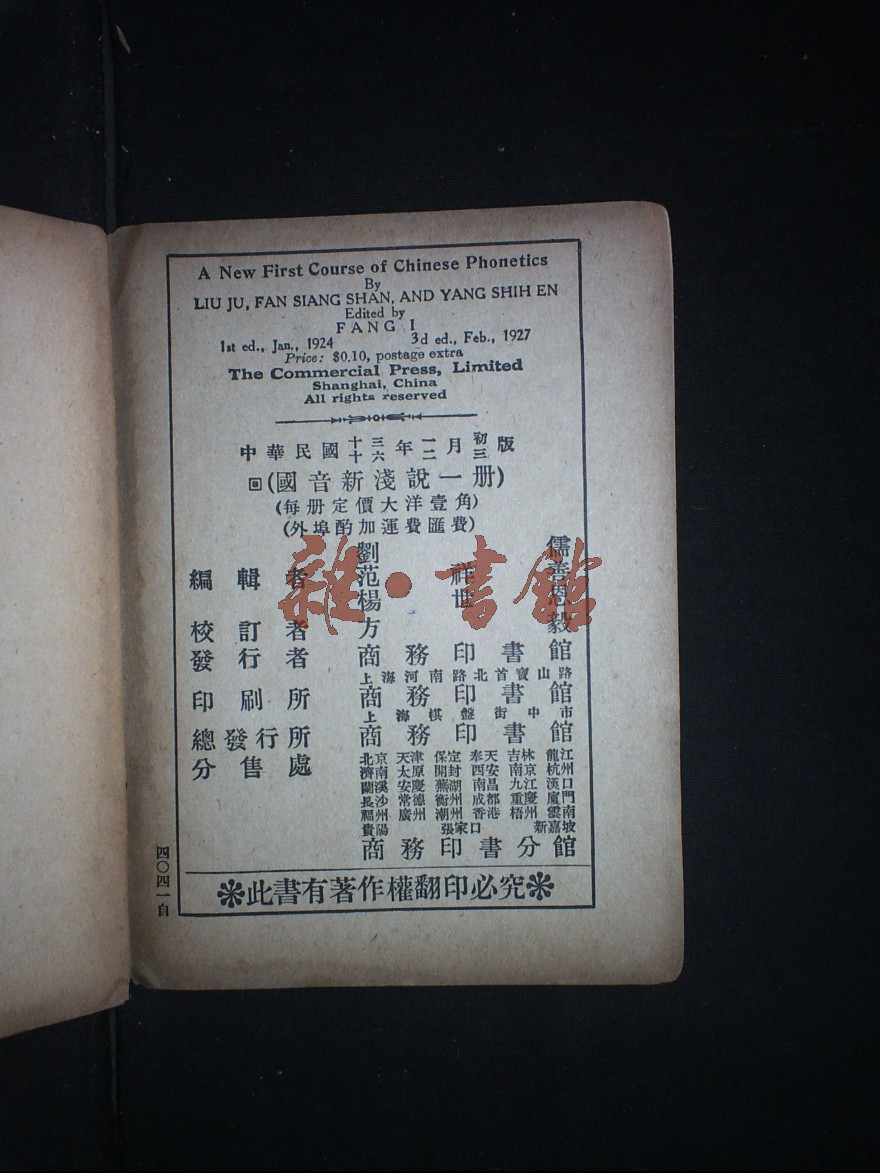 A New First Course of Chinese Phonetics
By
LIU JU, FAN SIANG SHAN, AND YANG SHIH EN
Edited by
FANG I
1st ed., Jan., 1924 3d ed., Feb., 1927
Price: $0.10, postage extra
The Commercial Press, Limited
Shanghai, China
All rights reserved
中華民國十三年一月初版
十六 二 三
回(國音新淺說一册)
(每册定價大洋壹角)
(外埠酌加運費匯費)
編輯者 劉儒
范祥善
楊世恩
校訂者 方毅
發行者 商務印書館
上海河南路北首寶山路
印刷所 商務印書館
上海棋盤街中市
總發行所 商務印書館
分售處 北京天津保定奉天吉林龍江
濟南太原開封西安南京杭州
蘭溪安慶蕪湖南昌九江漢口
長沙常德衡州成都重慶廈門
福州廣州潮州香港梧州雲南
貴陽張家口新嘉坡
商務印書分館
此書有著作權翻印必究
四〇四一自
雜·書館